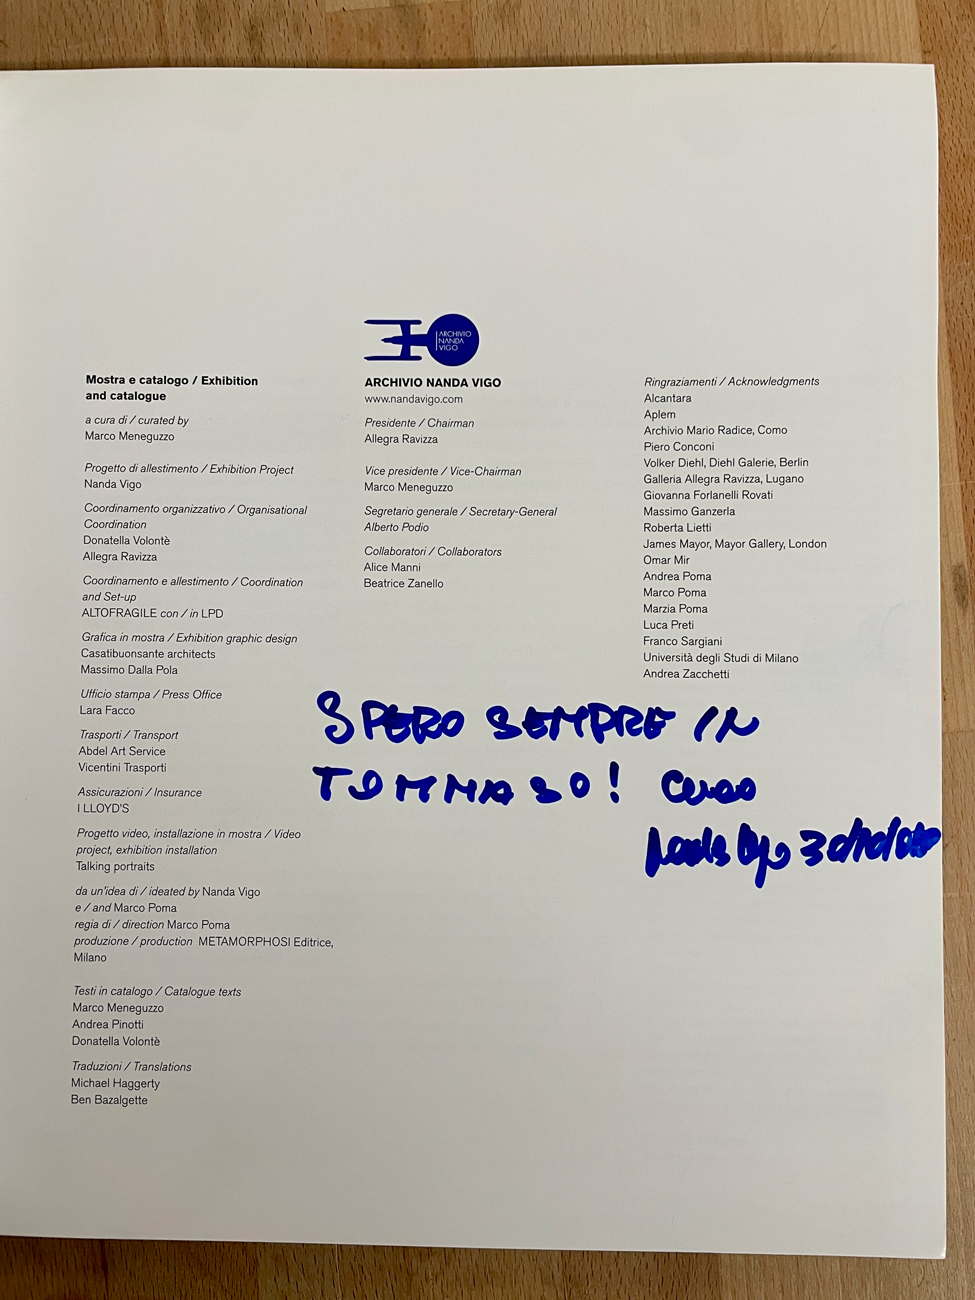 Mostra e catalogo / Exhibition
and catalogue
a cura di / curated by
Marco Meneguzzo
Progetto di allestimento / Exhibition Project
Nanda Vigo
Coordinamento organizzativo / Organisational
Coordination
Donatella Volontè
Allegra Ravizza
Coordinamento e allestimento / Coordination
and Set-up
ALTOFRAGILE con / in LPD
Grafica in mostra / Exhibition graphic design
Casatibuonsante architects
Massimo Dalla Pola
Ufficio stampa / Press Office
Lara Facco
Trasporti / Transport
Abdel Art Service
Vicentini Trasporti
Assicurazioni / Insurance
I LLOYD'S
Progetto video, installazione in mostra / Video
project, exhibition installation
Talking portraits
da un'idea di / ideated by Nanda Vigo
e / and Marco Poma
regia di / direction Marco Poma
produzione / production METAMORPHOSI Editrice,
Milano
Testi in catalogo / Catalogue texts
Marco Meneguzzo
Andrea Pinotti
Donatella Volontè
Traduzioni / Translations
Michael Haggerty
Ben Bazalgette
ARCHIVIO
NANDA
VIGO
ARCHIVIO NANDA VIGO
www.nandavigo.com
Presidente / Chairman
Allegra Ravizza
Vice presidente / Vice-Chairman
Marco Meneguzzo
Segretario generale / Secretary-General
Alberto Podio
Collaboratori / Collaborators
Alice Manni
Beatrice Zanello
Ringraziamenti / Acknowledgments
Alcantara
Aplem
Archivio Mario Radice, Como
Piero Conconi
Volker Diehl, Diehl Galerie, Berlin
Galleria Allegra Ravizza, Lugano
Giovanna Forlanelli Rovati
Massimo Ganzerla
Roberta Lietti
James Mayor, Mayor Gallery, London
Omar Mir
Andrea Poma
Marco Poma
Marzia Poma
Luca Preti
Franco Sargiani
Università degli Studi di Milano
Andrea Zacchetti
SPERO SEMPRE IN
TOMMASO!